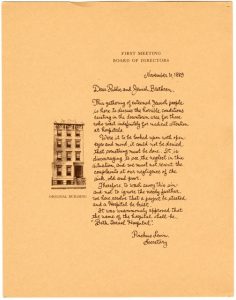 FIRST MEETING
BOARD OF DIRECTORS
November 3, 1889
Dear Rabbi and Jewish Brethren,
This gathering of esteemed Jewish people
is here to discuss the horrible conditions
existing in the downtown area for those
who wait indefinitely for medical attention
at hospitals.
Were it to be looked upon with open
eyes and mind, it could not be denied,
that something must be done. It is
discouraging to see the neglect in this
situation, and we must not resent the
complaints at our negligence of the
sick, old and poor.
Therefore, to wash away this sin
and not to ignore the needy further,
we have resolved that a project be started
and a Hospital be built.
It was unanimously approved that
the name of the hospital shall be
"Beth Israel Hospital".
Secretary
ORIGINAL BUILDING